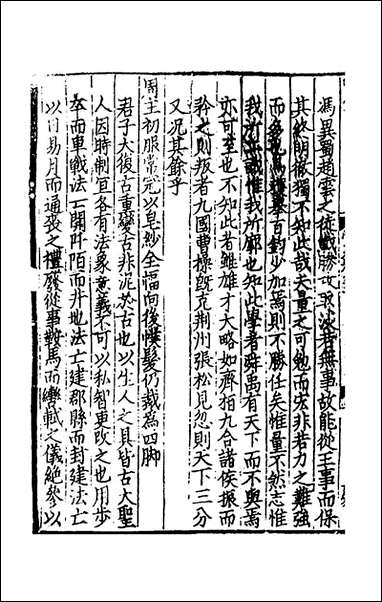 馮異蜀趙雲之徒戰勝攻取淡若無事故能從王事而保
其終獨不知此哉夫量之可勉而宏非若力之難強
而烏獲舉百鈞少加焉則不勝任矣惟量不然志惟
我所惟我所廓也知此學者舜禹有天下而不與焉
亦可至也不知此者雖雄才大略如齊桓九合諸侯振而
矜之則叛者九國曹操既克荆州張松見忽則天下三分
又況其餘乎
周主初服常冠以皂紗全幅向後幞髮仍裁爲四脚
君子大復古重變古非泥於古也以生人之具皆古大聖
人因時制宜各有法象意義不可以私智更改之也用步
卒而車戰法亡開阡陌而井地法亡建郡縣而封建法亡
以日易月而通喪之禮廢從事鞍馬而鸞軾之儀絶參以